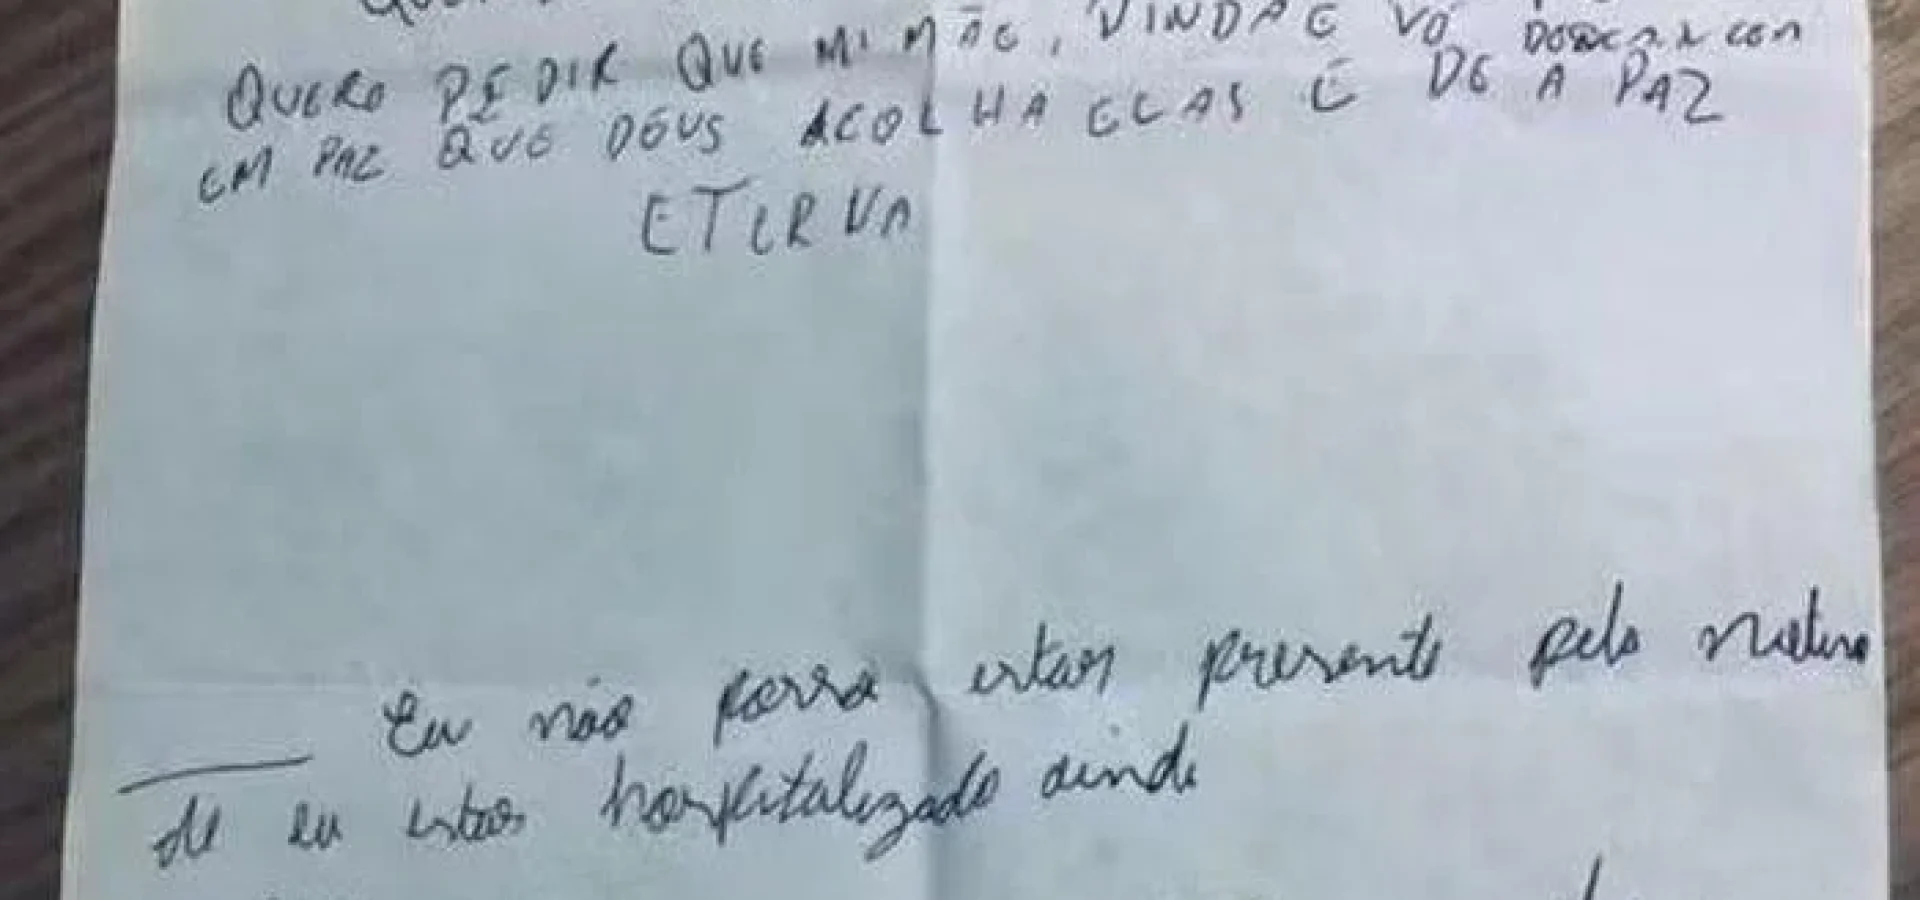 QUERO PEDIR QUE MI MÃE, DINDA E VÓ
EM PAZ QUE DEUS ACOLHA ELAS E DE A PAZ
ETERNA
Eu não possa estar presente pelo
de eu estar hospitalizado ainda